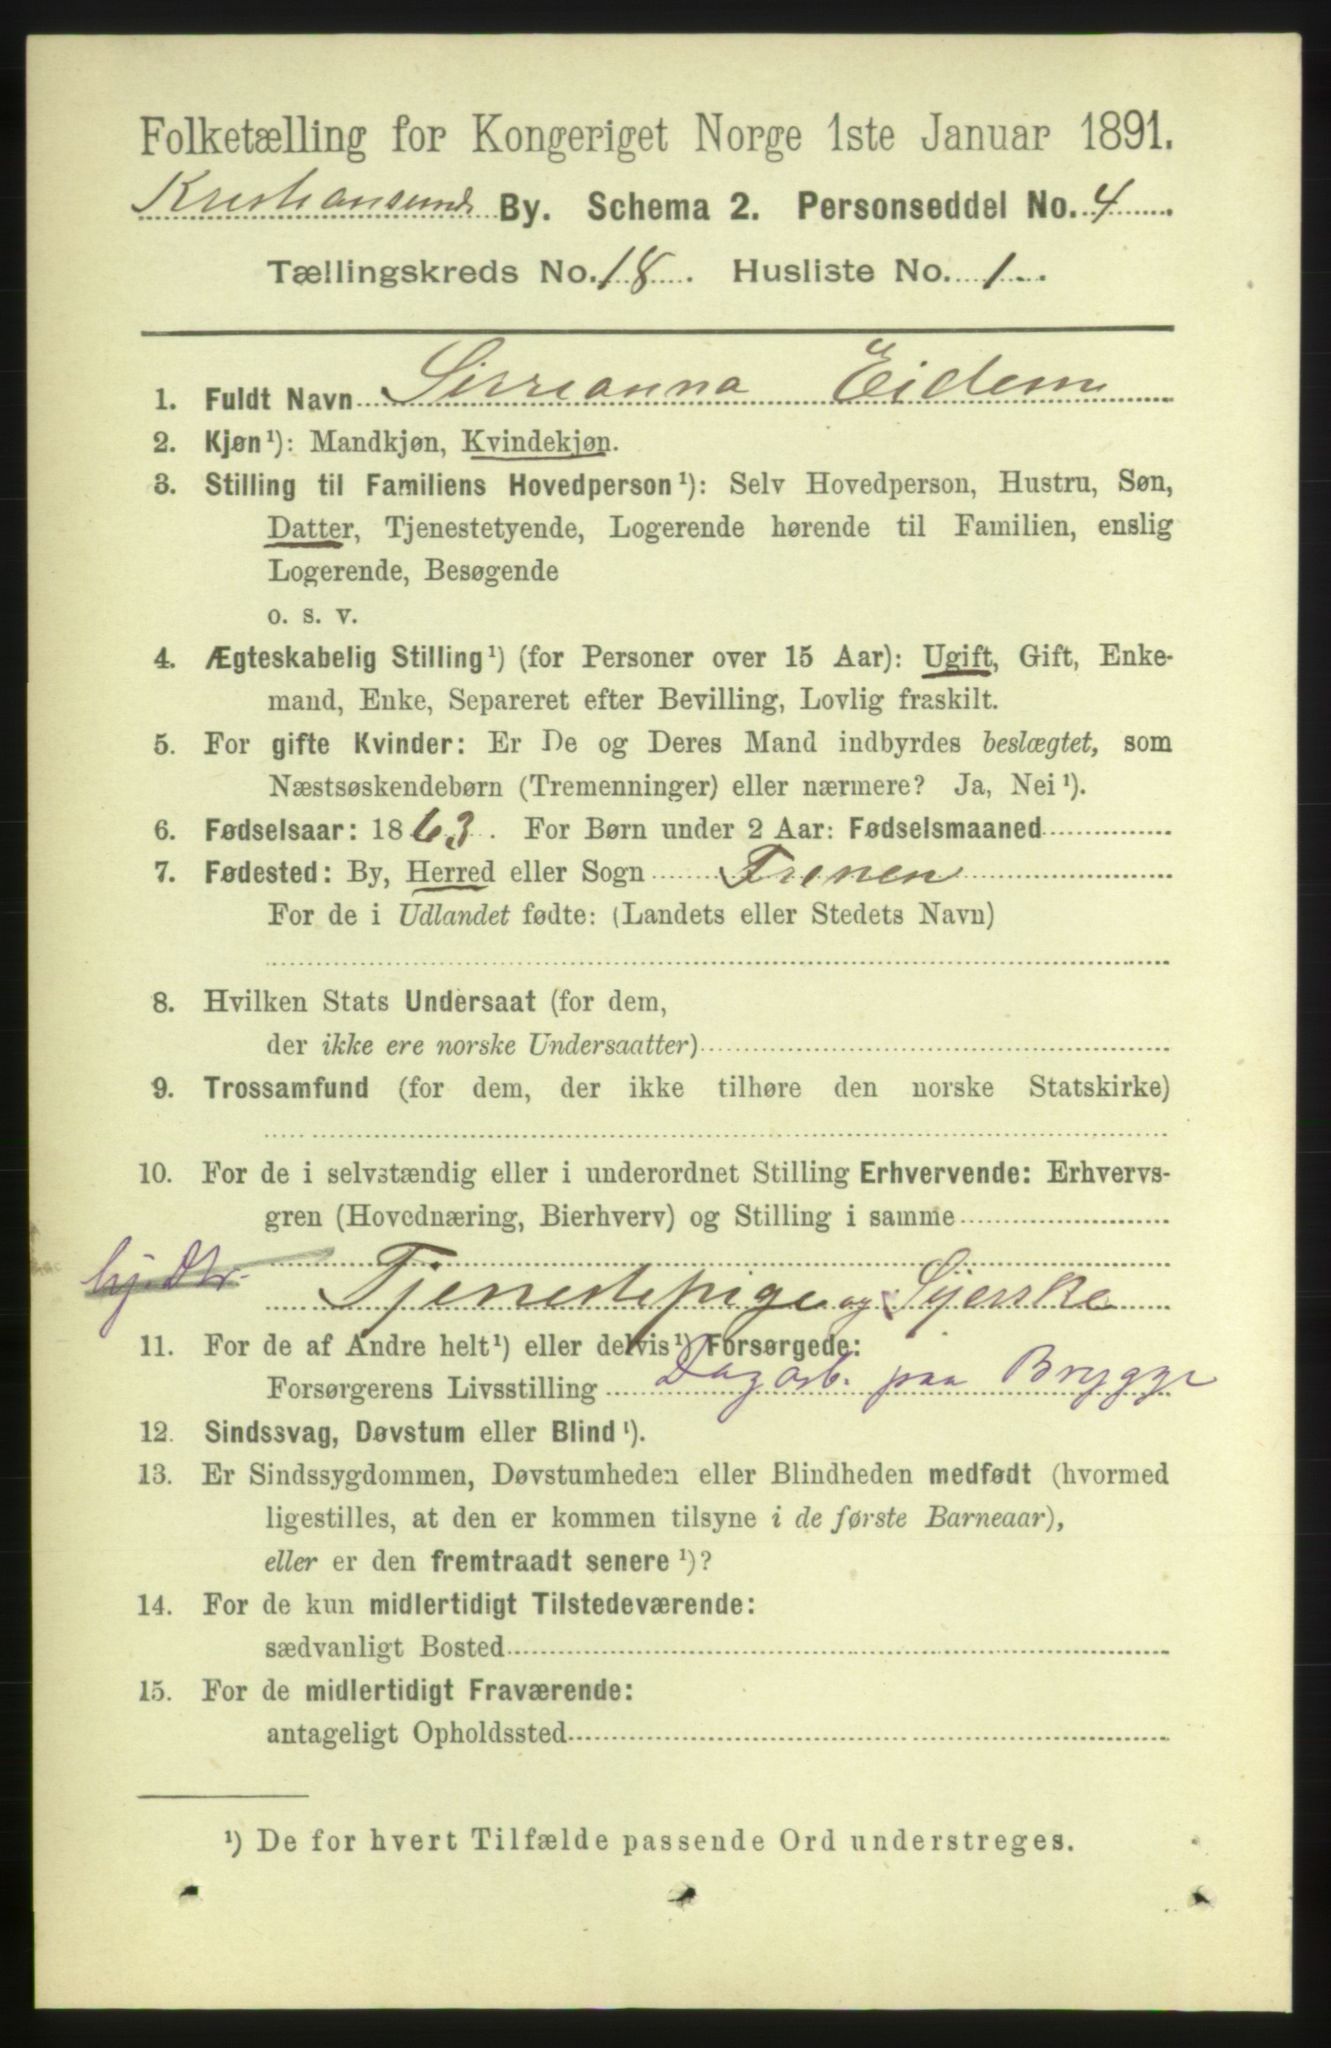 Folketælling for Kongeriget Norge 1ste Januar 1891.
Kristiansund By. Schema 2. Personseddel No. 4
Tællingskreds No. 18. Husliste No. 1.
1. Fuldt Navn Sirianna Eidem
2. Kjøn¹): Mandkjøn, Kvindekjøn.
3. Stilling til Familiens Hovedperson¹): Selv Hovedperson, Hustru, Søn,
Datter, Tjenestetyende, Logerende hørende til Familien, enslig
Logerende, Besøgende
o. s. v.
4. Ægteskabelig Stilling¹) (for Personer over 15 Aar): Ugift, Gift, Enke-
mand, Enke, Separeret efter Bevilling, Lovlig fraskilt.
5. For gifte Kvinder: Er De og Deres Mand indbyrdes beslægtet, som
Næstsøskendebørn (Tremenninger) eller nærmere? Ja, Nei¹).
6. Fødselsaar: 1863. For Børn under 2 Aar: Fødselsmaaned
7. Fødested: By, Herred eller Sogn Frenen
For de i Udlandet fødte: (Landets eller Stedets Navn)
8. Hvilken Stats Undersaat (for dem,
der ikke ere norske Undersaatter)
9. Trossamfund (for dem, der ikke tilhøre den norske Statskirke)
10. For de i selvstændig eller i underordnet Stilling Erhvervende: Erhvervs-
gren (Hovednæring, Bierhverv) og Stilling i samme
hj. Dtr. Tjenestepige og Syerske
11. For de af Andre helt¹) eller delvis¹) Forsørgede:
Forsørgerens Livsstilling Dagarb. paa Brygge
12. Sindssvag, Døvstum eller Blind¹).
13. Er Sindssygdommen, Døvstumheden eller Blindheden medfødt (hvormed
ligestilles, at den er kommen tilsyne i de første Barneaar),
eller er den fremtraadt senere¹)?
14. For de kun midlertidigt Tilstedeværende:
sædvanligt Bosted
15. For de midlertidigt Fraværende:
antageligt Opholdssted
¹) De for hvert Tilfælde passende Ord understreges.